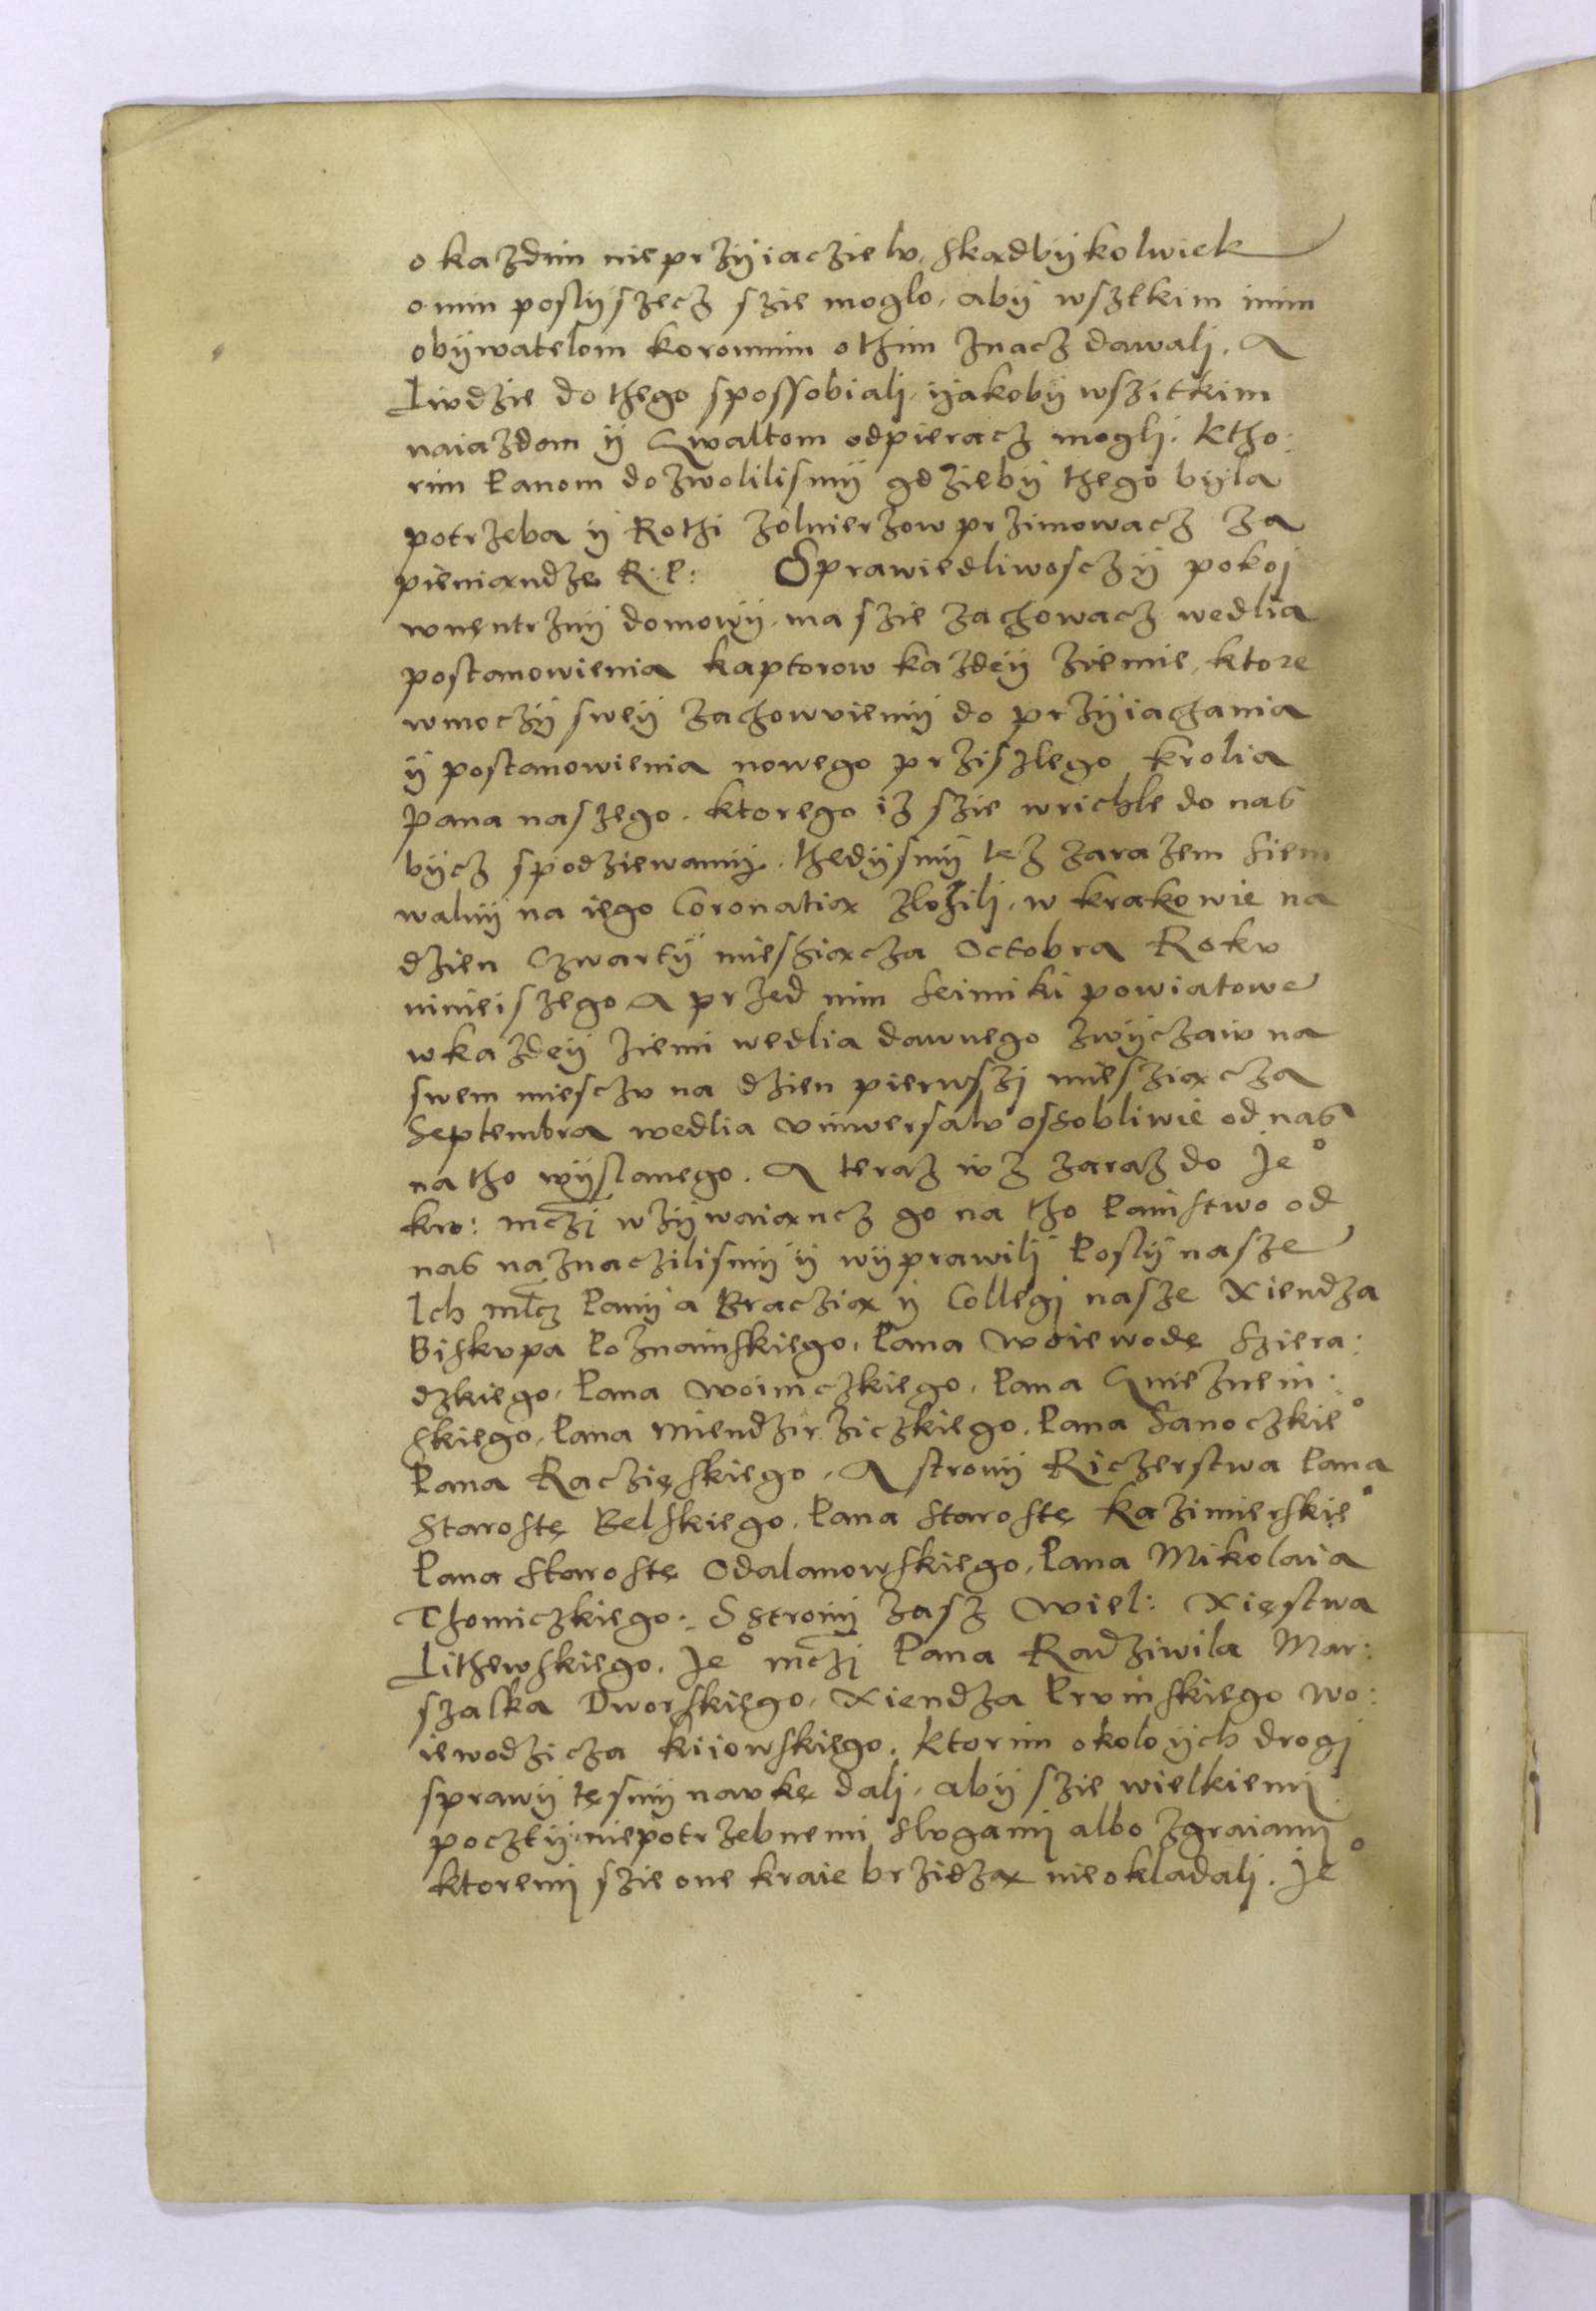 o kazdim nieprzÿiaczielv, skadbÿkolwiek
o nim poslÿszecz szie moglo, abÿ wszłkim inim
obÿwatelom koronnim o thim znacz dawalj. A
Livdzie do thego spossobialj, ÿakobÿ wszitkim
naiazdom ÿ Gwaltom odpieracz moglj. Ktho:
rim Panom dozwolilismÿ gdziebÿ thego bÿla
potrzeba ÿ Rothi zolnierzow przimowacz za
pieniandze R: P: Sprawiedliwosczÿ pokoj
wnentrznÿ domowÿ, ma szie zachowacz wedlia
postanowienia kaptorow kazdeÿ ziemie, ktore
w moczÿ sweÿ zachowviemÿ do przÿiachania
ÿ postanowienia nowego prziszlego krolia
Pana naszego. ktorego iz szie wrichle do nas
bÿcz spodziewamÿ. thedÿsmÿ tez zarazem siem
walnÿ na iego Coronatią zlozilj, w krakowie na
dzien Czwartÿ miesziącza Octobra Rokv
ninieiszego A przed nim seimiki powiatowe
w kazdeÿ ziemi wedlia dawnego zwÿczaiv na
swem miesczv na dzien pierwszj miesziącza
Septembra wedlia vniwersalv ossobliwie od nas
na tho wÿslanego. A teraz ivz zaraz do Je°
kro: mczj wzÿwaiąncz go na tho Painstwo od
nas naznaczilismÿ ÿ wÿprawilj Poslÿ nasze
Ich młcz Panÿ a Braczią ÿ Collegj nasze Xiendza
Biskvpa Poznainskiego, Pana Woiewodę Sziera:
dzkiego, Pana Woiniczkiego, Pana Gnieznein:
skiego, Pana Miendzirziczkiego, Pana Sanoczkie°
Pana Raczięskiego, A stronÿ Riczerstwa Pana
Starostę Belskiego, Pana Starostę Kazimierskie°
Pana Starostę Odalanowskiego, Pana Mikolaia
Thomiczkiego. S Stronÿ zasz Wiel: Xięstwa
Lithewskiego, Je° mczj Pana Radziwila Mar:
szalka Dworskiego, Xiendza Prvinskiego Wo:
iewodzicza kiiowskiego. ktorim okolo ÿch drogj
sprawÿ tęsmÿ navkę dalj, abÿ szie wielkiemj
pocztÿ niepotrzebnemi slvgamj albo zgraiamj
ktoremj szie one kraie brzidzą nie okladalj. Je°